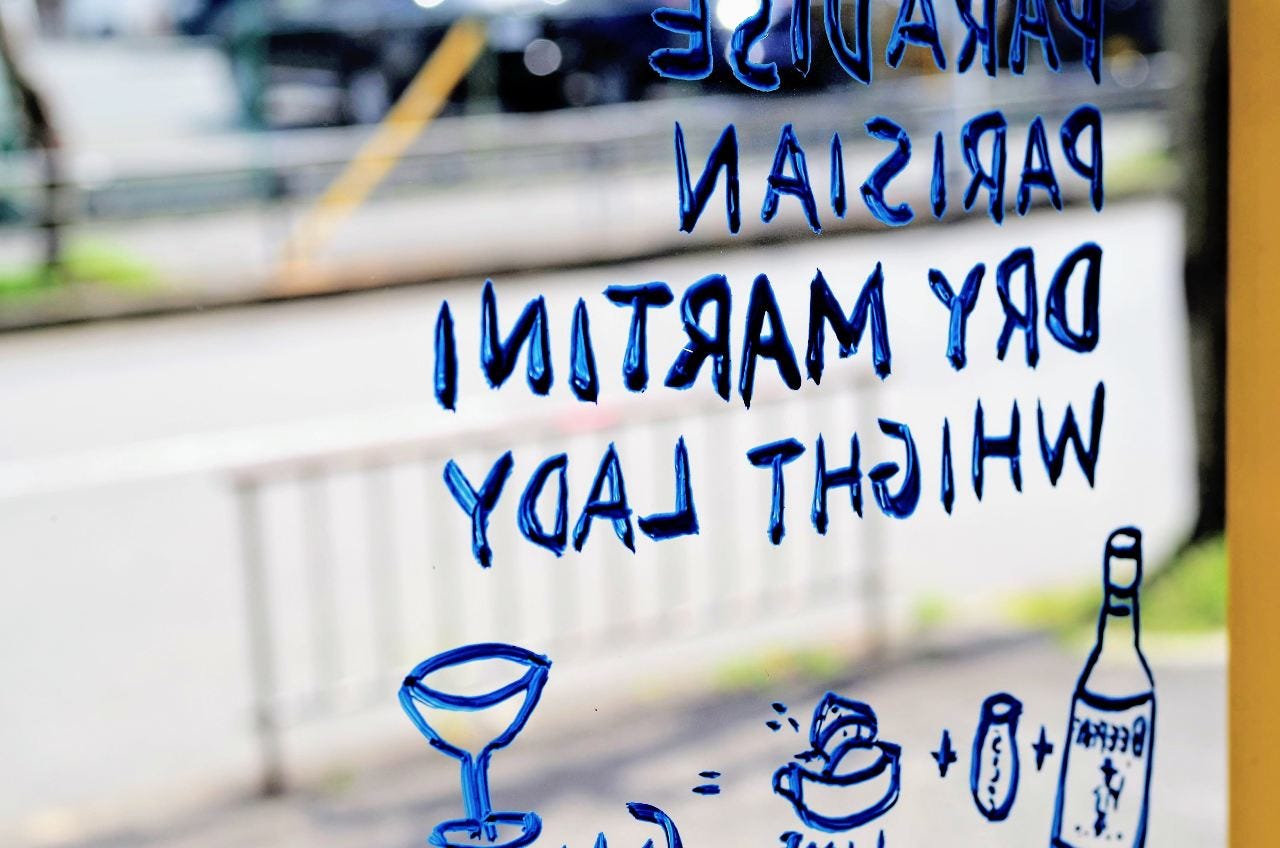 PARADISE
PARISIAN
DRY MARTINI
WHIGHT LADY
+ + =